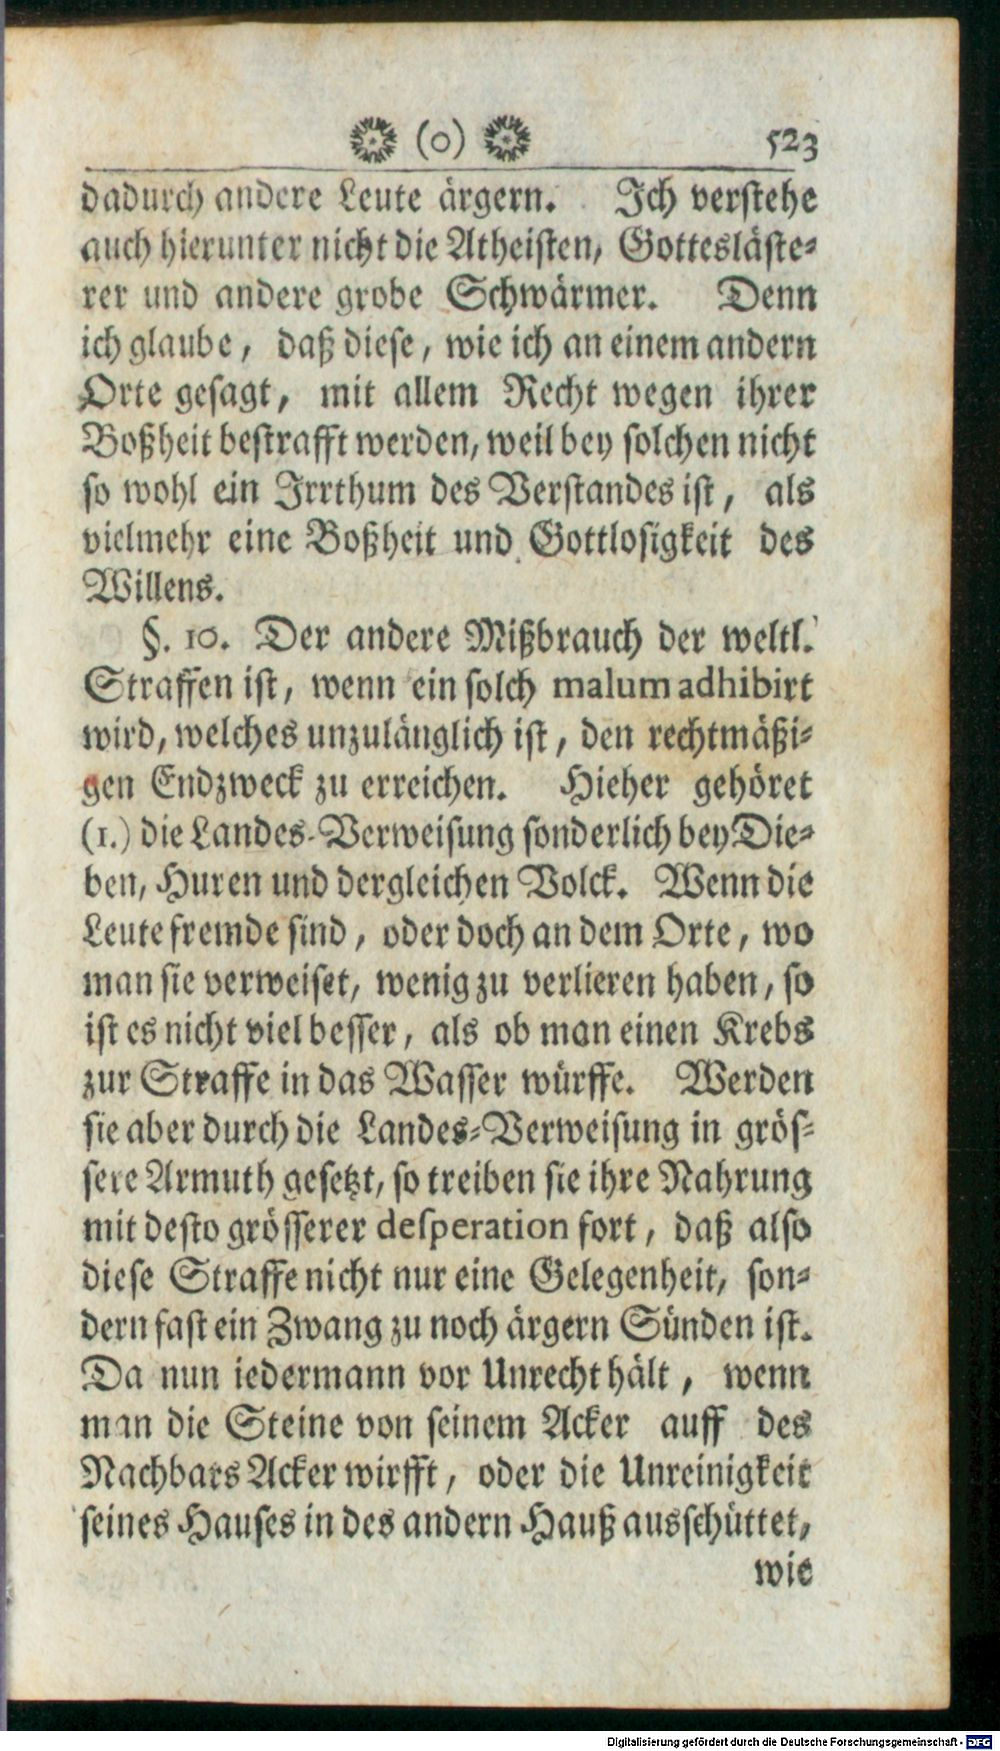 (o) 523
dadurch andere Leute ärgern. Ich verstehe
auch hierunter nicht die Atheisten, Gottesläste-
rer und andere grobe Schwärmer. Denn
ich glaube, daß diese, wie ich an einem andern
Orte gesagt, mit allem Recht wegen ihrer
Boßheit bestrafft werden, weil bey solchen nicht
so wohl ein Irrthum des Verstandes ist, als
vielmehr eine Boßheit und Gottlosigkeit des
Willens.
§. 10. Der andere Mißbrauch der weltl.
Straffen ist, wenn ein solch malum adhibirt
wird, welches unzulänglich ist, den rechtmäßi-
gen Endzweck zu erreichen. Hieher gehöret
(1.) die Landes-Verweisung sonderlich bey Die-
ben, Huren und dergleichen Volck. Wenn die
Leute fremde sind, oder doch an dem Orte, wo
man sie verweiset, wenig zu verlieren haben, so
ist es nicht viel besser, als ob man einen Krebs
zur Straffe in das Wasser würffe. Werden
sie aber durch die Landes-Verweisung in grös-
sere Armuth gesetzt, so treiben sie ihre Nahrung
mit desto grösserer desperation fort, daß also
diese Straffe nicht nur eine Gelegenheit, son-
dern fast ein Zwang zu noch ärgern Sünden ist.
Da nun iedermann vor Unrecht hält, wenn
man die Steine von seinem Acker auff des
Nachbars Acker wirfft, oder die Unreinigkeit
seines Hauses in des andern Hauß ausschüttet,
wie
Digitalisierung gefördert durch die Deutsche Forschungsgemeinschaft - DFG